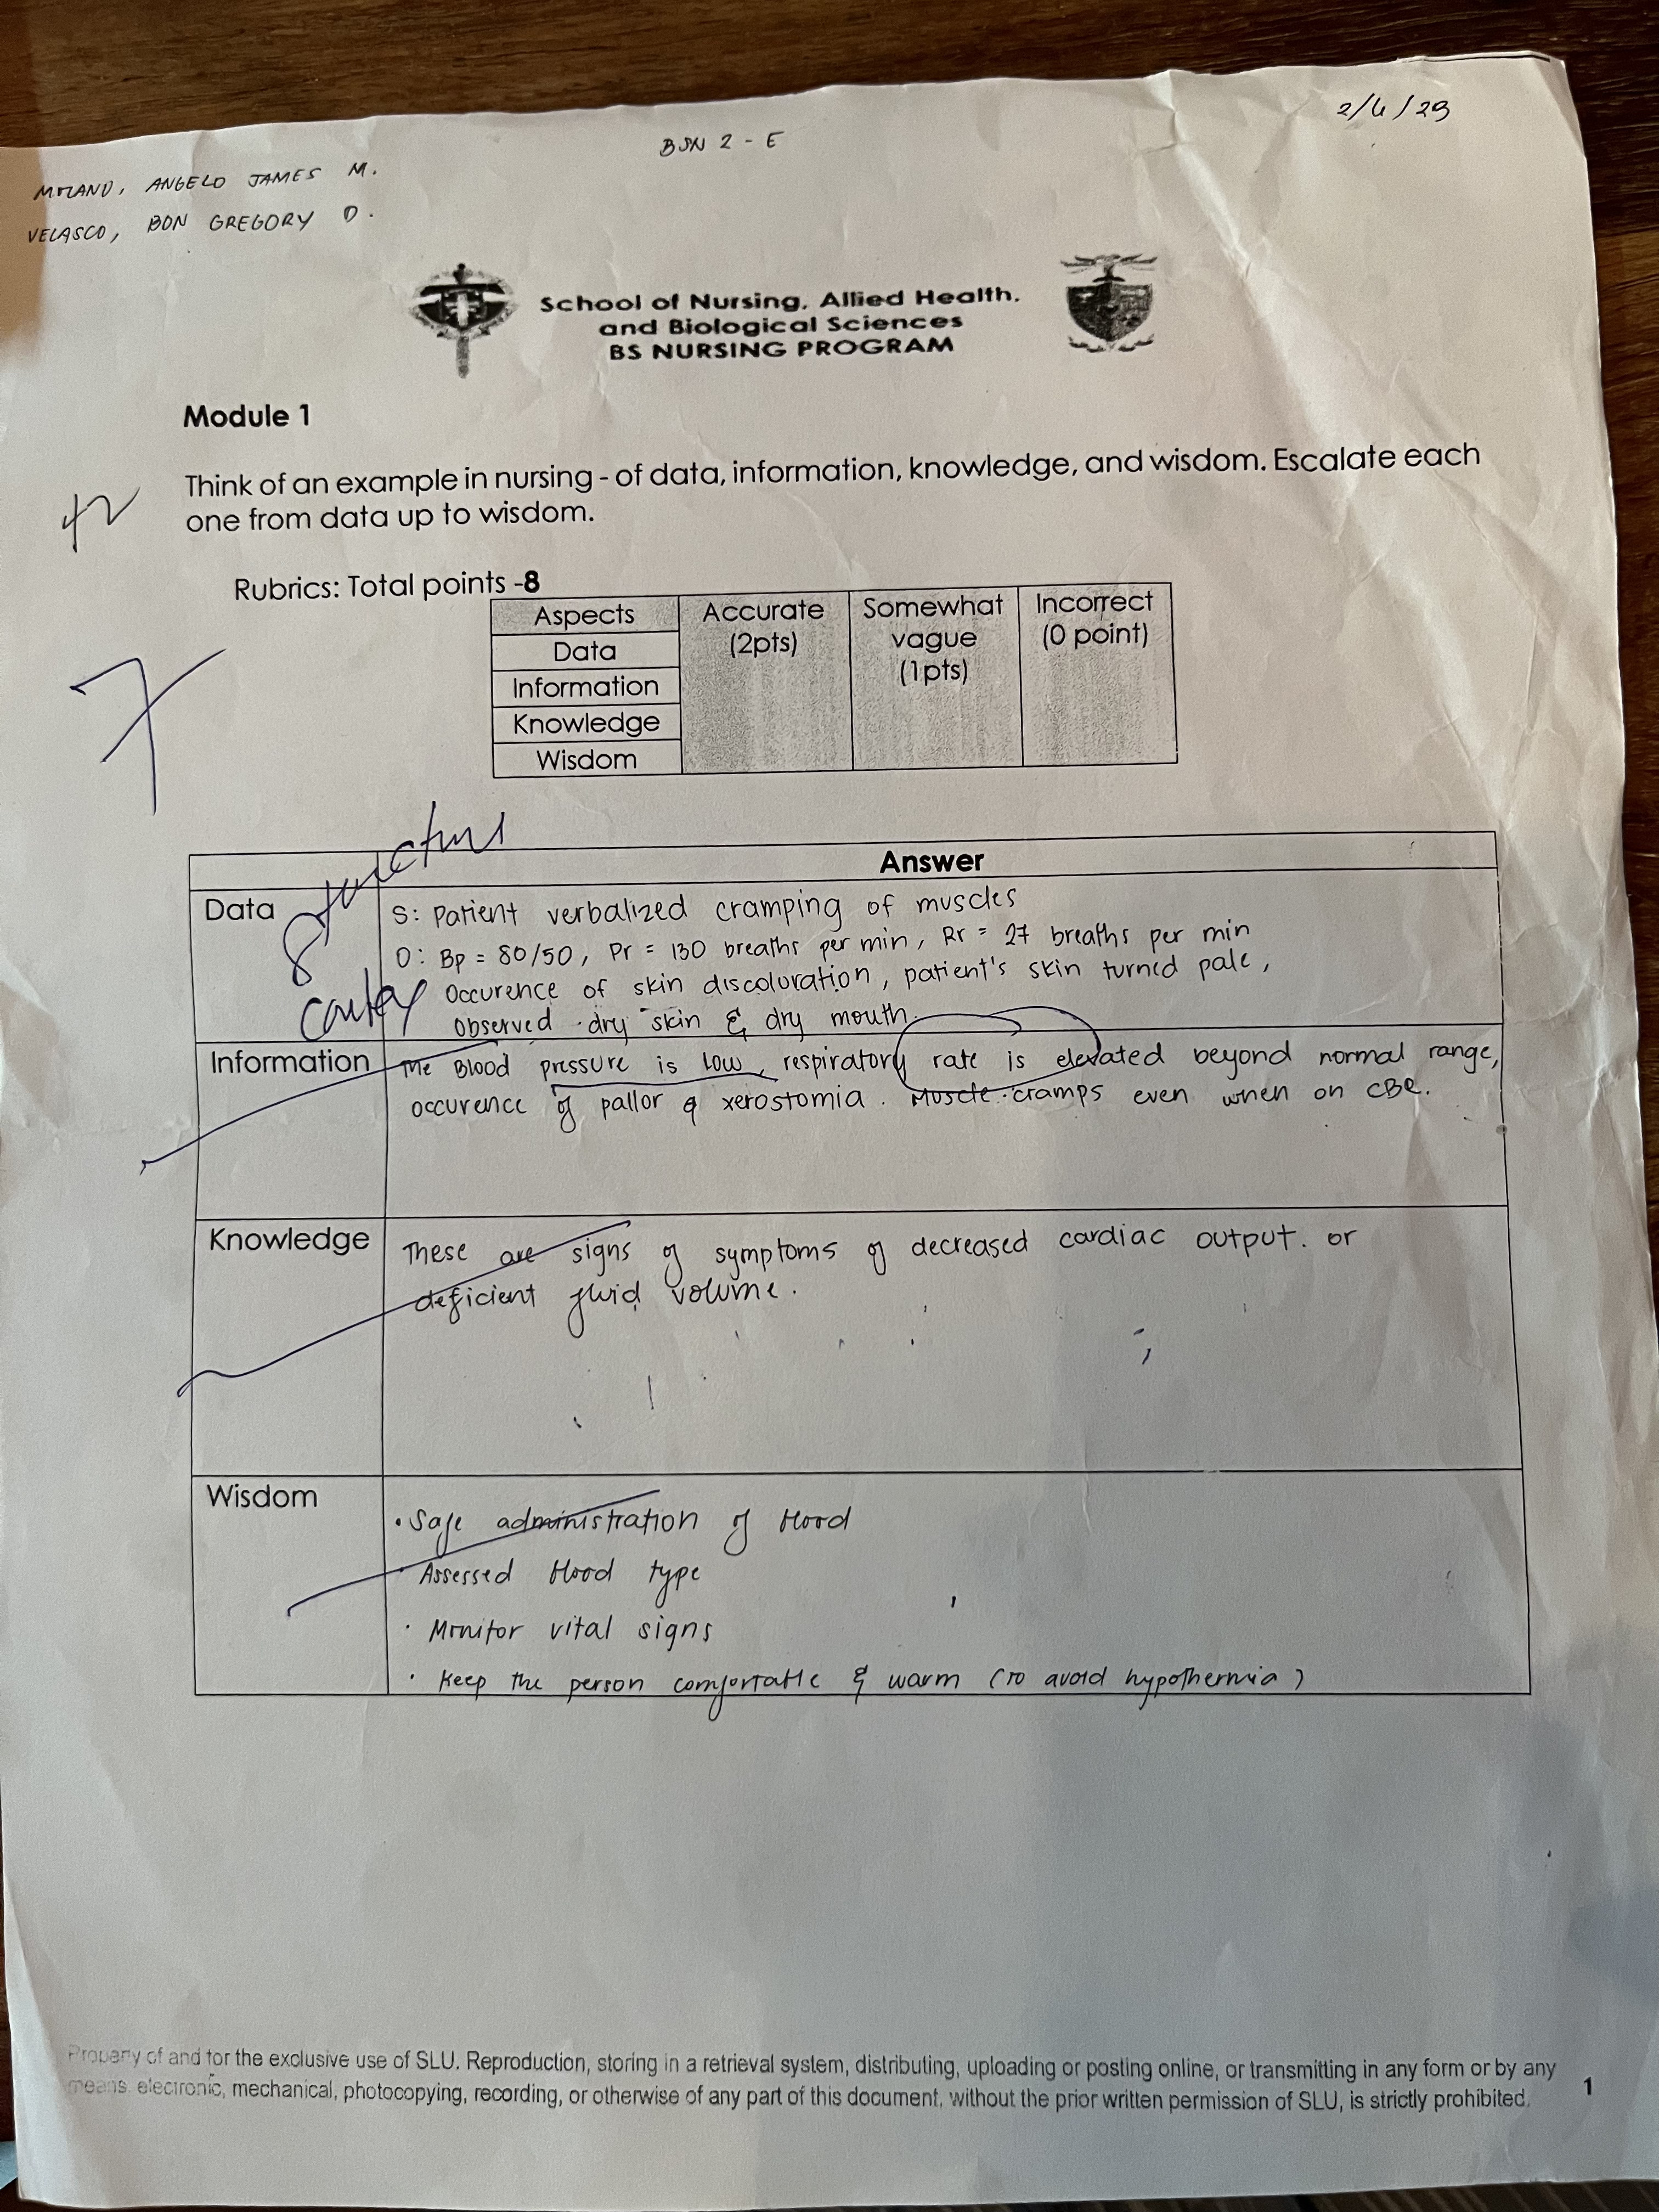 2/6/23
BSN 2 - E
ANGELO JAMES M.
VELASCO, BON GREGORY D.
School of Nursing, Allied Health,
and Biological Sciences
BS NURSING PROGRAM
Module 1
Think of an example in nursing - of data, information, knowledge, and wisdom. Escalate each
one from data up to wisdom.
42
Rubrics: Total points -8
Aspects
Accurate
(2pts)
Somewhat
vague
(1pts)
Incorrect
(0 point)
Data
Information
Knowledge
Wisdom
7
Answer
Data
S: Patient verbalized cramping of muscles
O: Bp = 80/50, Pr = 130 breaths per min, Rr = 27 breaths per min
Occurence of skin discoloration, patient's skin turned pale,
Observed dry skin & dry mouth.
Information
The Blood pressure is low, respiratory rate is elevated beyond normal range,
occurence of pallor & xerostomia. Muscle cramps even when on CBR.
Knowledge
These are signs of symptoms of decreased cardiac output. or
deficient fluid volume.
Wisdom
• Safe administration of blood
• Assessed blood type
• Monitor vital signs
• Keep the person comfortable & warm (to avoid hypothermia)
Property of and for the exclusive use of SLU. Reproduction, storing in a retrieval system, distributing, uploading or posting online, or transmitting in any form or by any
means. electronic, mechanical, photocopying, recording, or otherwise of any part of this document, without the prior written permission of SLU, is strictly prohibited.
1